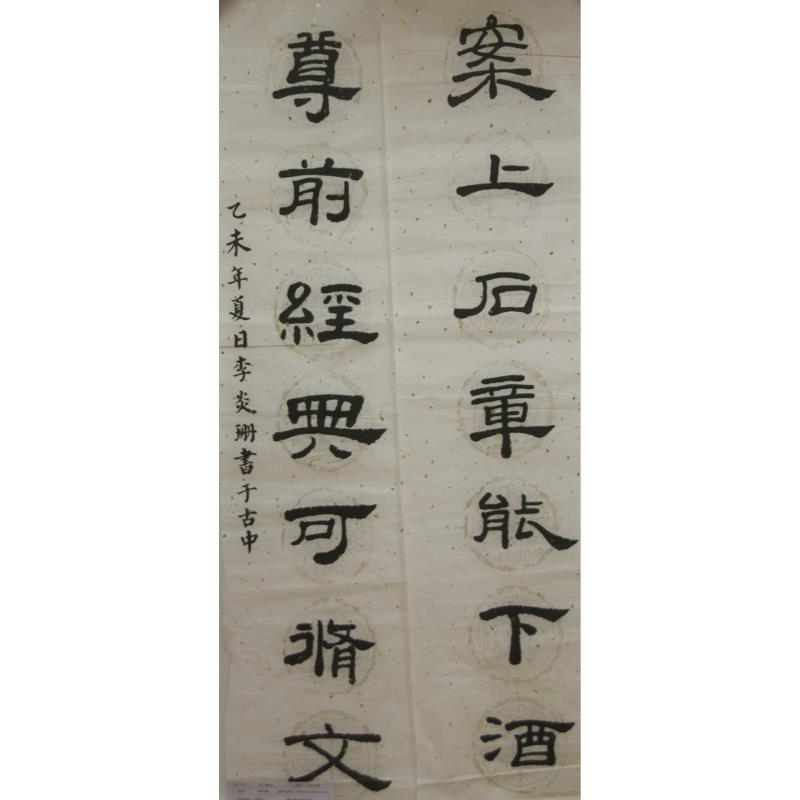 案上石章能下酒
尊前經典可脩文
乙未年夏日李炎珊書于古中